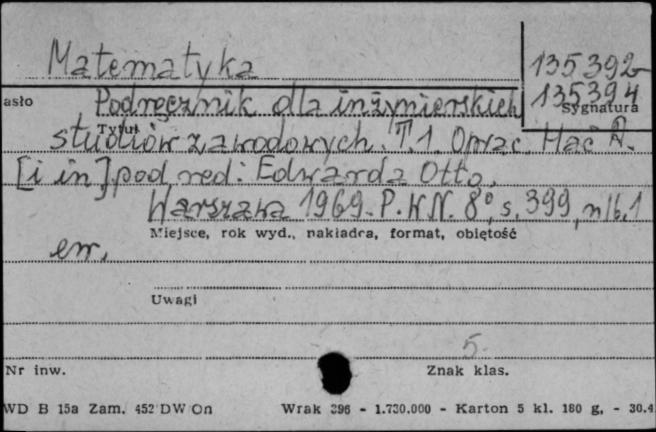 Matematyka
135392-
135394
Sygnatura
asło
Podręcznik dla inżynierskich
Tytuł
studiów zawodowych. T.1. Oprac. Hać R.
[i in] pod red: Edwarda Otto.
Warszawa 1969. P.W.N. 8°, s. 399, nlb. 1
Miejsce, rok wyd., nakładca, format, objętość
err.
Uwagi
5.
Nr inw.
Znak klas.
WD B 15a Zam. 452 DW On
Wrak 396 - 1.730.000 - Karton 5 kl. 180 g. - 30.4